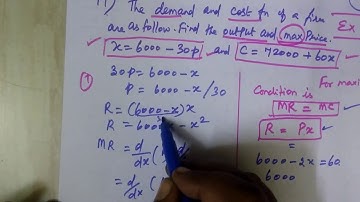 The demand and cost fn of a firm
are as follow. Find the output and max Price.
x = 6000 – 30p and C = 72000 + 60x
Ex
① 30p = 6000 – x
P = 6000 – x/30
R = (6000 – x)x
R = 6000 – x²
MR = d/dx (
= d/dx (
Condition is
For maxi
MR = MC
R = Px
=
6000 – 2x = 60
6000